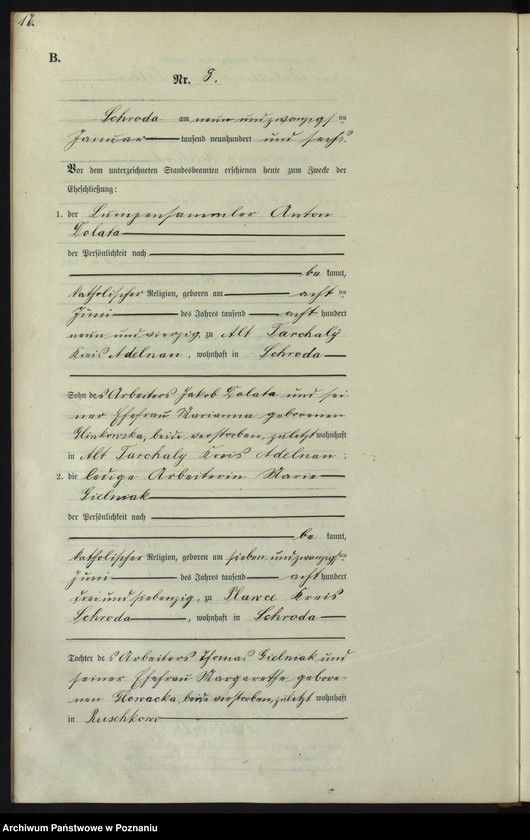 17.
B.
Nr. 8.
Schroda am neun undzwanzigsten
Januar tausend neunhundert und sechs.
Vor dem unterzeichneten Standesbeamten erschienen heute zum Zwecke der
Eheschließung:
1. der Lumpensammler Anton
Dolata
der Persönlichkeit nach
be kannt,
katholischer Religion, geboren am acht ten
Juni des Jahres tausend acht hundert
neun und vierzig, zu Alt Tarchaly
Kreis Adelnau, wohnhaft in Schroda
Sohn des Arbeiters Jakob Dolata und sei
ner Ehefrau Marianna geborenen
Glinkowska, beide verstorben, zuletzt wohnhaft
in Alt Tarchaly Kreis Adelnau;
2. die ledige Arbeiterin Marie
Gielniak
der Persönlichkeit nach
be kannt,
katholischer Religion, geboren am sieben undzwanzigsten
Juni des Jahres tausend acht hundert
drei und siebenzig, zu Plawce Kreis
Schroda, wohnhaft in Schroda
Tochter des Arbeiters Thomas Gielniak und
seiner Ehefrau Margarethe gebore-
nen Glowacka, beide verstorben, zuletzt wohnhaft
in Ruschkowo
Archiwum Państwowe w Poznaniu